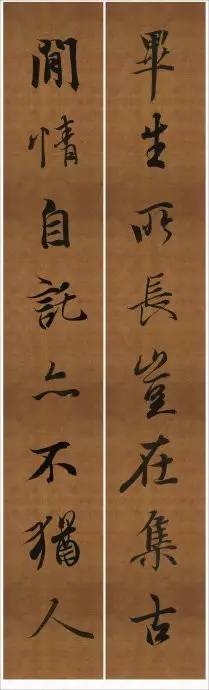 畢生所長豈在集古
閒情自託亦不猶人